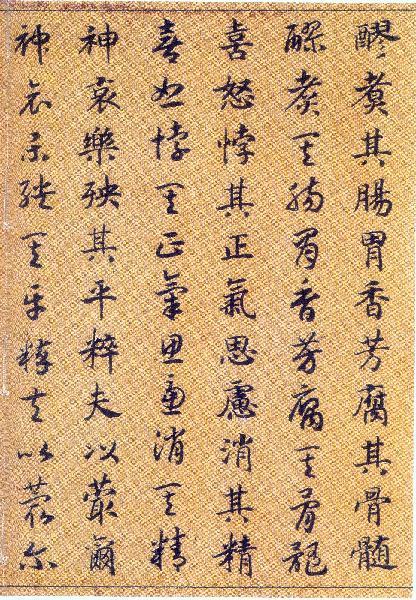 醪煮其腸胃香芳腐其骨髓
醪煮其腸胃香芳腐其骨髓
喜怒悖其正氣思慮消其精
喜怒悖其正氣思慮消其精
神哀樂殃其平粹夫以蕞爾
神哀樂殃其平粹夫以蕞尔